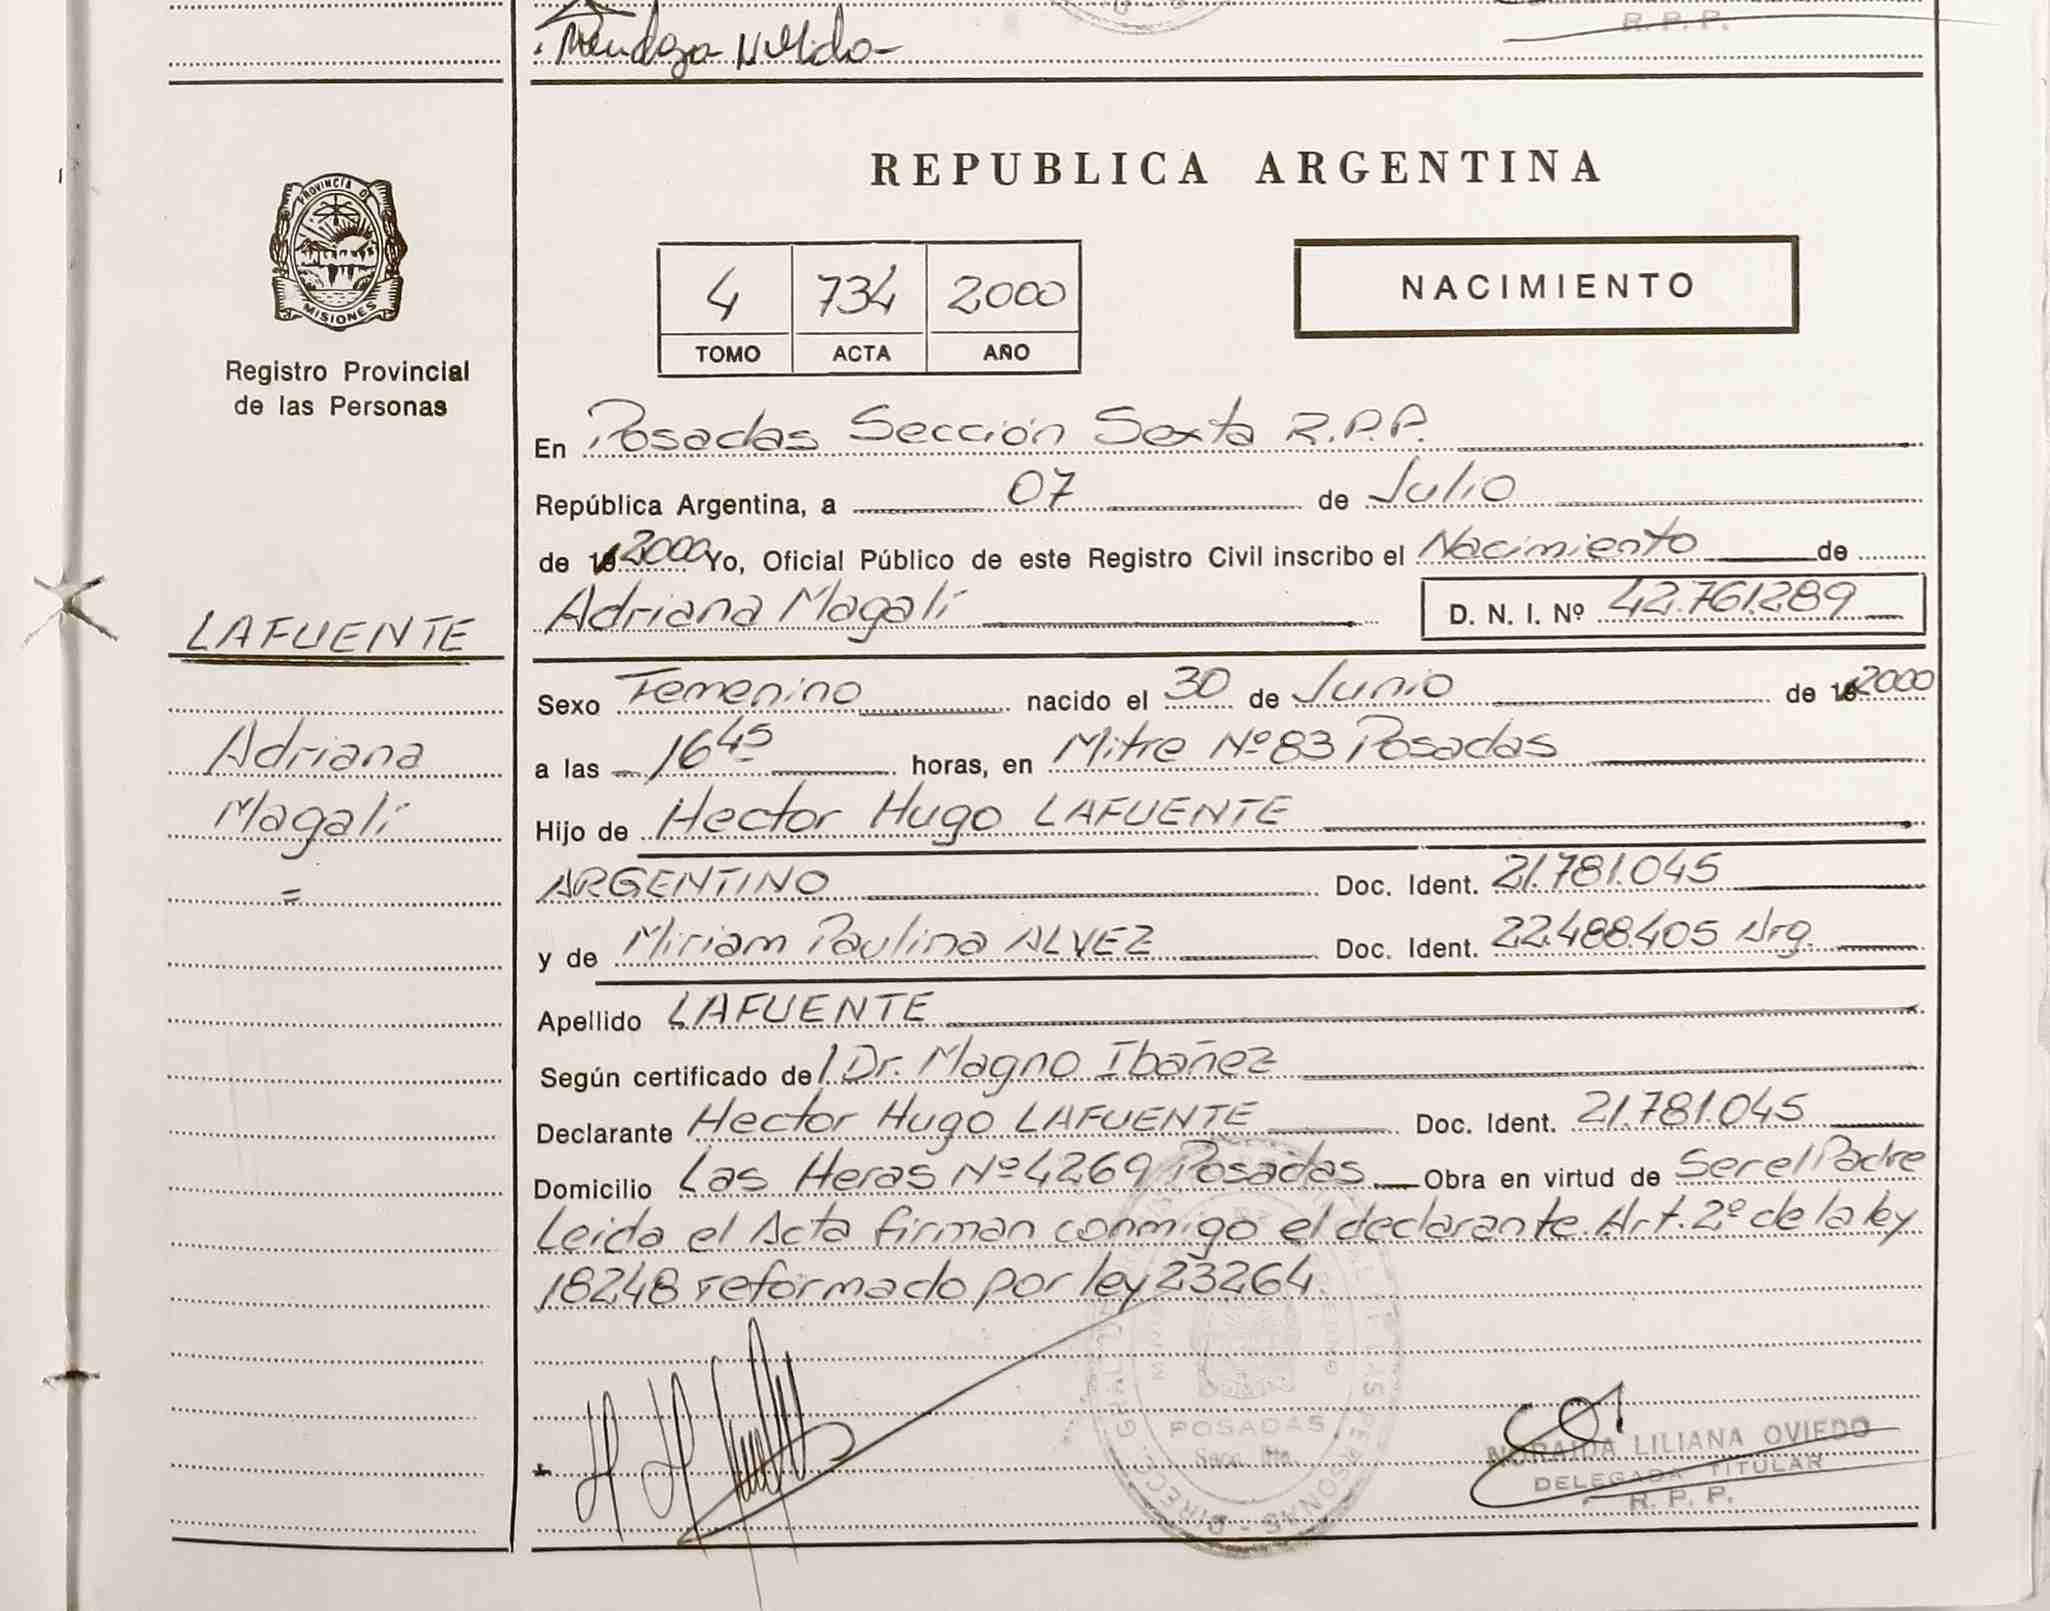 Mendoza Nélida
R. P. P.
REPUBLICA ARGENTINA
PROVINCIA DE
MISIONES
4 734 2000
TOMO ACTA AÑO
NACIMIENTO
Registro Provincial
de las Personas
En Posadas Sección Sexta R.P.P.
República Argentina, a 07 de Julio
de 19 2000 Yo, Oficial Público de este Registro Civil inscribo el Nacimiento de
Adriana Magalí D. N. I. Nº 42.761.289
LAFUENTE
Adriana
Magalí
=
Sexo Femenino nacido el 30 de Junio de 19 2000
a las 16 45 horas, en Mitre Nº 83 Posadas
Hijo de Hector Hugo LAFUENTE
ARGENTINO Doc. Ident. 21.781.045
y de Miriam Paulina ALVEZ Doc. Ident. 22.488.405 Arg.
Apellido LAFUENTE
Según certificado de/ Dr. Magno Ibañez
Declarante Hector Hugo LAFUENTE Doc. Ident. 21.781.045
Domicilio Las Heras Nº 4269 Posadas. Obra en virtud de Ser el Padre
Leida el Acta firman conmigo el declarante. Art. 2º de la ley
18248 reformado por ley 23264.
POSADAS
NORAIDA LILIANA OVIEDO
DELEGADA TITULAR
R. P. P.